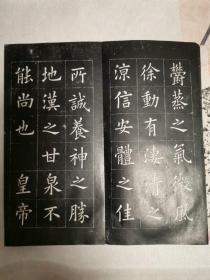 鬱蒸之氣微風
徐動有淒清之
涼信安體之佳
所誠養神之勝
地漢之甘泉不
能尚也 皇帝